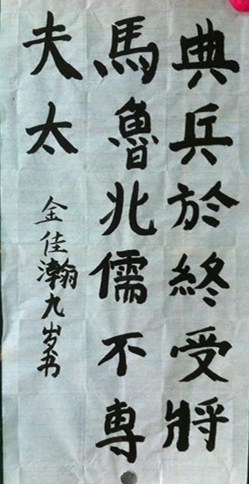 典兵於終受將
馬魯兆儒不専
夫太
金佳瀚九岁书